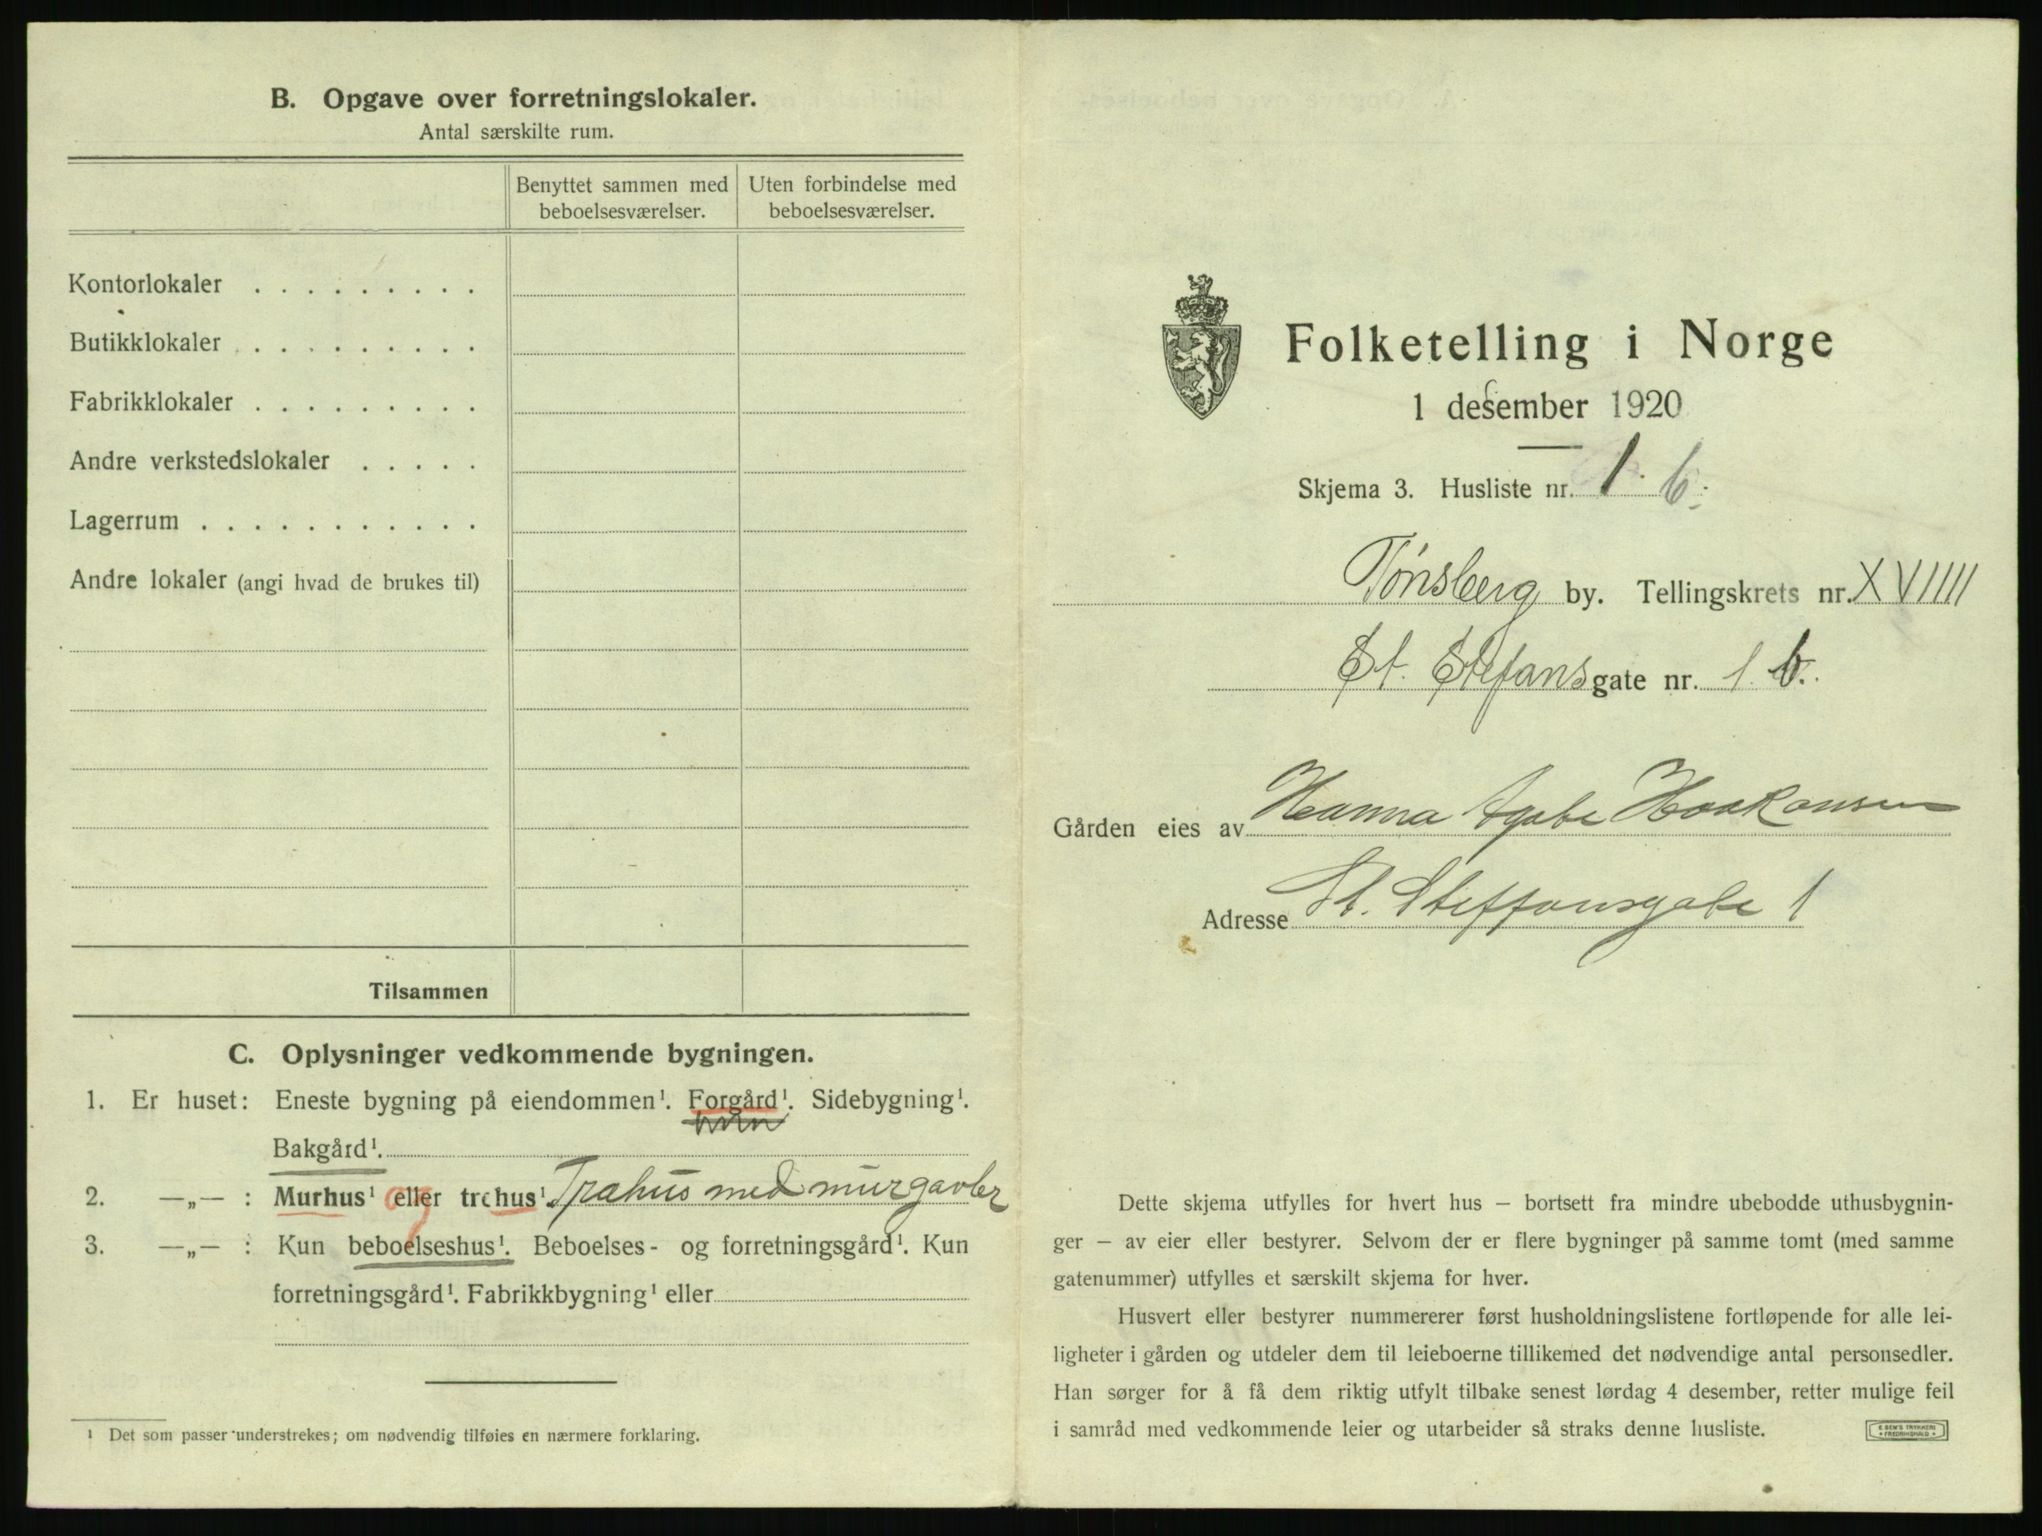 B. Opgave over forretningslokaler.
Antal særskilte rum.
Benyttet sammen med beboelsesværelser.
Uten forbindelse med beboelsesværelser.
Kontorlokaler . . . . . . . . .
Butikklokaler . . . . . . . . .
Fabrikklokaler . . . . . . . . .
Andre verkstedslokaler . . . . .
Lagerrum . . . . . . . . . . .
Andre lokaler (angi hvad de brukes til)
Tilsammen
C. Oplysninger vedkommende bygningen.
1. Er huset: Eneste bygning på eiendommen¹. Forgård¹. Sidebygning¹.
Bakgård¹.
2. —„— : Murhus¹ eller og trehus¹. Træhus med murgavler
3. —„— : Kun beboelseshus¹. Beboelses- og forretningsgård¹. Kun
forretningsgård¹. Fabrikkbygning¹ eller
¹ Det som passer understrekes; om nødvendig tilføies en nærmere forklaring.
Folketelling i Norge
1 desember 1920
Skjema 3. Husliste nr. 1. b.
Tønsberg by. Tellingskrets nr. XVIIII
St. Stefans gate nr. 1 b.
Gården eies av Hanna Agate Haakansen
Adresse St. Steffansgate 1
Dette skjema utfylles for hvert hus — bortsett fra mindre ubebodde uthusbygnin-
ger — av eier eller bestyrer. Selvom der er flere bygninger på samme tomt (med samme
gatenummer) utfylles et særskilt skjema for hver.
Husvert eller bestyrer nummererer først husholdningslistene fortløpende for alle lei-
ligheter i gården og utdeler dem til leieboerne tillikemed det nødvendige antal personsedler.
Han sørger for å få dem riktig utfylt tilbake senest lørdag 4 desember, retter mulige feil
i samråd med vedkommende leier og utarbeider så straks denne husliste.
E. SEM'S TRYKKERI
FREDRIKSHALD